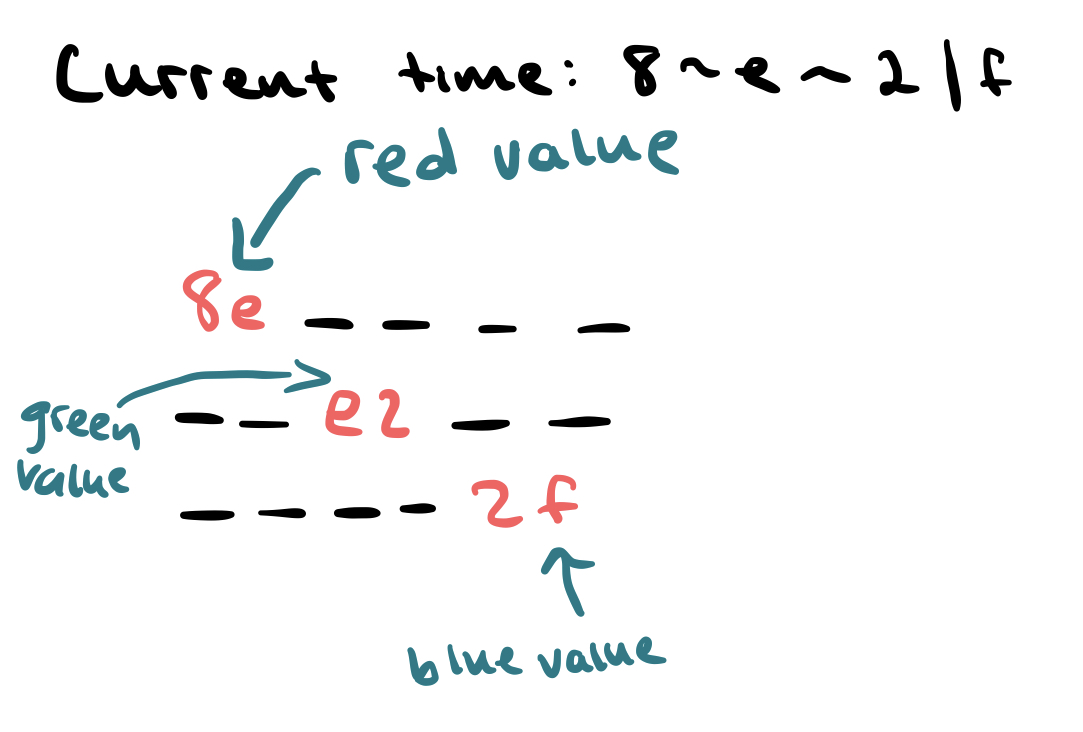 Current time: 8~e~2|f
red value
8e _ _ _ _
green
_ _ e2 _ _
value
_ _ _ _ 2f
blue value